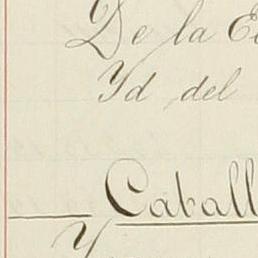 De la E
Yd del
Caball
Y